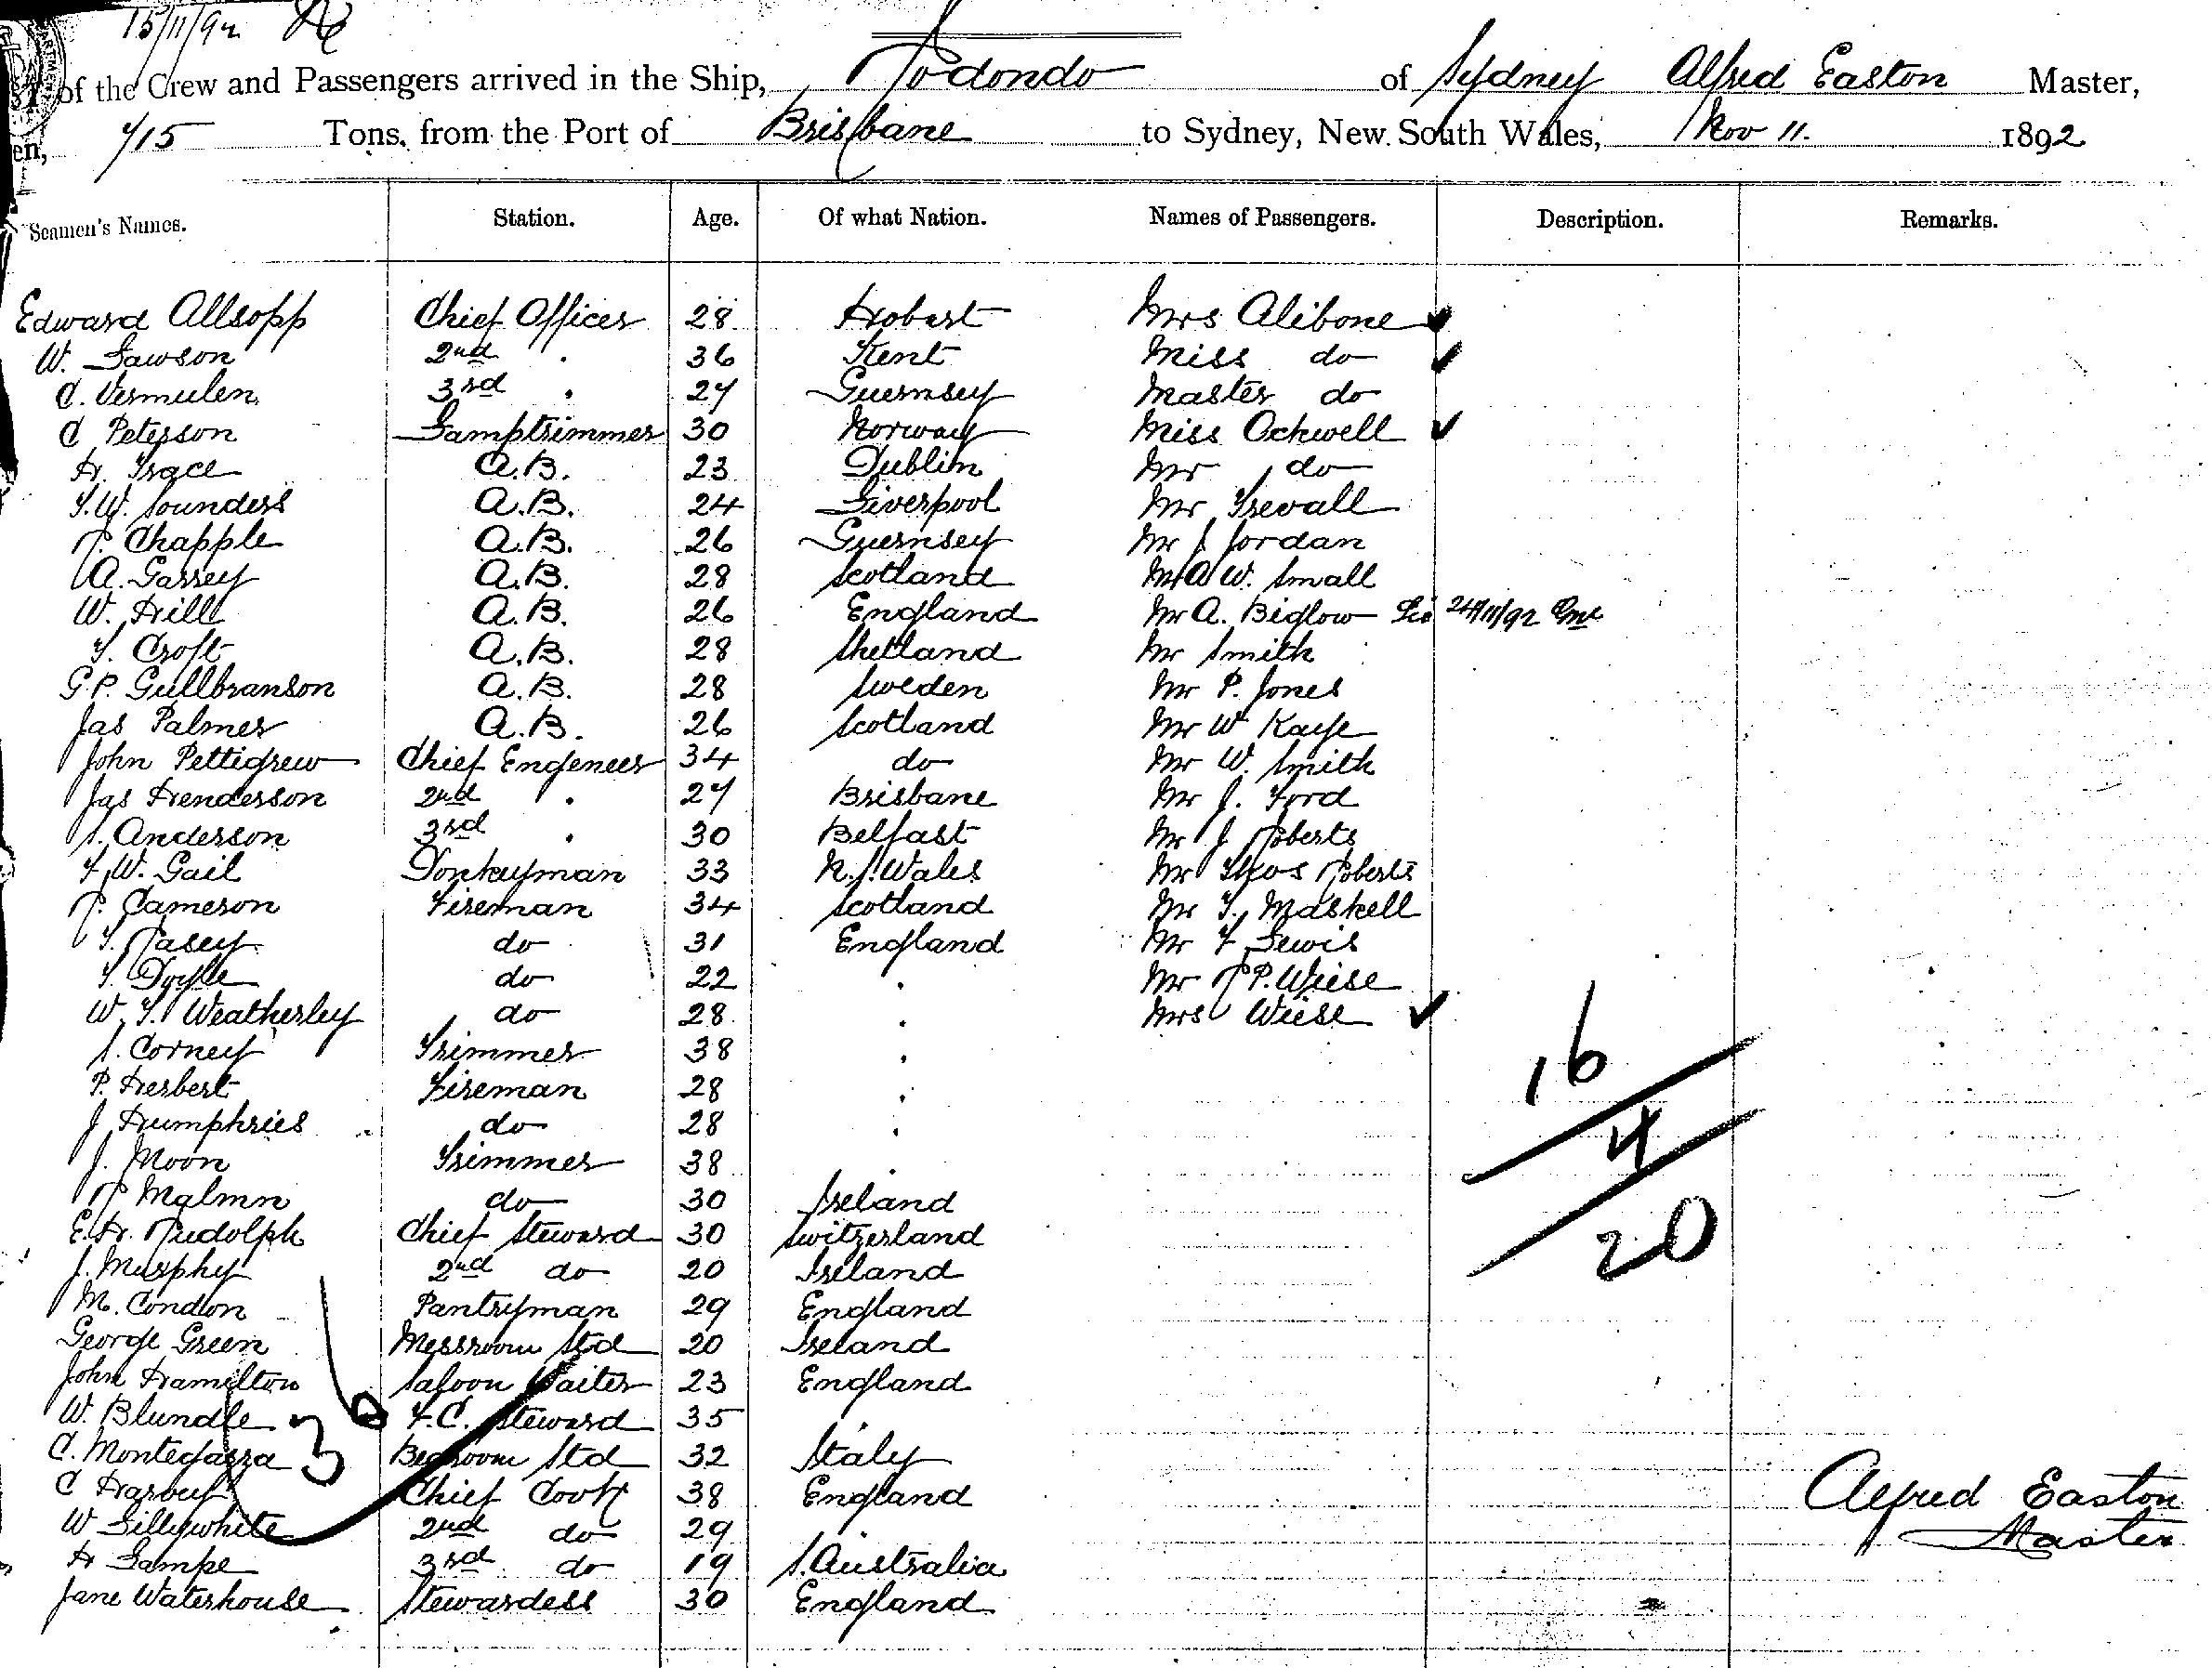 15/11/92
of the Crew and Passengers arrived in the Ship, Rodondo of Sydney Alfred Easton Master,
715 Tons, from the Port of Brisbane to Sydney, New South Wales, Nov 11. 1892
Seamen's Names. Station. Age. Of what Nation. Names of Passengers. Description. Remarks.
Edward Allsopp Chief Officer 28 Hobart Mrs Alibone ✓
W. Lawson 2nd . 36 Kent Miss do ✓
C. Vermulen 3rd . 27 Guernsey Master do
C Peterson Lamptrimmer 30 Norway Miss Ockwell ✓
H. Grace A.B. 23 Dublin Mr do
T.W. Sounders A.B. 24 Liverpool Mr Trevall
R. Chapple A.B. 26 Guernsey Mr J Jordan
A. Garrey A.B. 28 Scotland Mr A W. Small
W. Hill A.B. 26 England Mr A. Biglow 24/11/92
T. Croft A.B. 28 Shetland Mr Smith
G.P. Gullbranson A.B. 28 Sweden Mr P. Jones
Jas Palmer A.B. 26 Scotland Mr W Kaye
John Pettigrew Chief Engeneer 34 do Mr W. Smith
Jas Henderson 2nd . 27 Brisbane Mr J. Ford
S. Anderson 3rd . 30 Belfast Mr J Roberts
F.W. Gail Donkeyman 33 N.S. Wales Mr Thos Roberts
R. Cameron Fireman 34 Scotland Mr T. Maskell
T. Casey do 31 England Mr F Lewis
T. Doyle do 22 . Mr R P. Wiese
W. T. Weatherley do 28 . Mrs Wiese ✓
S. Corney Trimmer 38 .
P. Herbert Fireman 28 . 16
J Humphries do 28 . 4
J. Moon Trimmer 38 .
R Malmn do 30 Ireland
E.H. Rudolph Chief Steward 30 Switzerland 20
J. Murphy 2nd do 20 Ireland
M. Condon Pantryman 29 England
George Green Messroom Std 20 Ireland
John Hamilton Saloon Waiter 23 England
W. Blundle F.C. Steward 35 .
C. Montegazza Bedroom Std 32 Italy
C Harvey Chief Cook 38 England Alfred Easton
W Lillywhite 2nd do 29 . Master
H Lampe 3rd do 19 S. Australia
Jane Waterhouse Stewardess 30 England